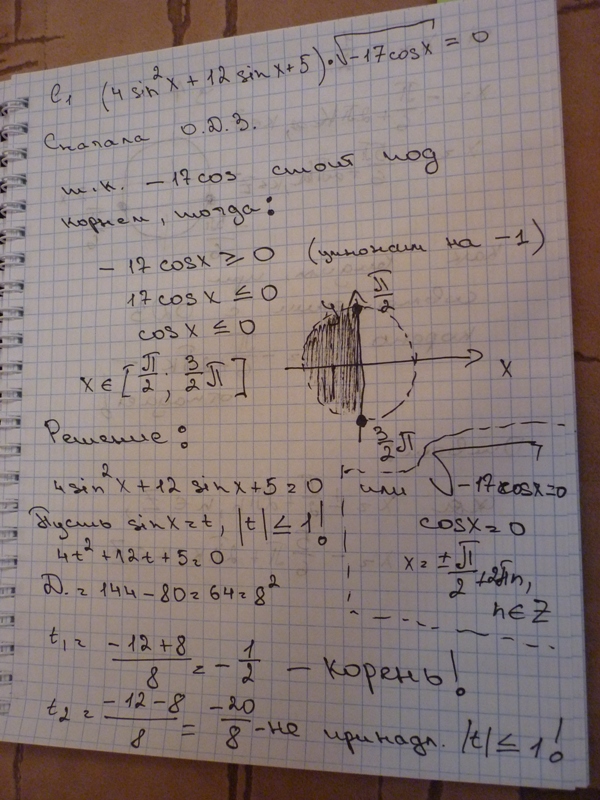 C₁ (4 sin²x + 12 sin x + 5) · √-17cosx = 0
Сначала О.Д.З.
т.к. -17cos стоит под
корнем, тогда:
-17cosx ≥ 0 (умножаем на -1)
17cos x ≤ 0
cosx ≤ 0
x ∈ [π/2; 3/2 π]
y
π/2
x
3/2 π
Решение:
4sin²x + 12 sinx + 5 = 0
или √-17cosx = 0
Пусть sinx = t, |t| ≤ 1!
cosx = 0
4t² + 12t + 5 = 0
x = ±π/2 + 2πn,
n ∈ Z
D = 144 - 80 = 64 = 8²
t₁ = (-12 + 8)/8 = -1/2 — корень!
t₂ = (-12 - 8)/8 = -20/8 - не принадл. |t| ≤ 1!